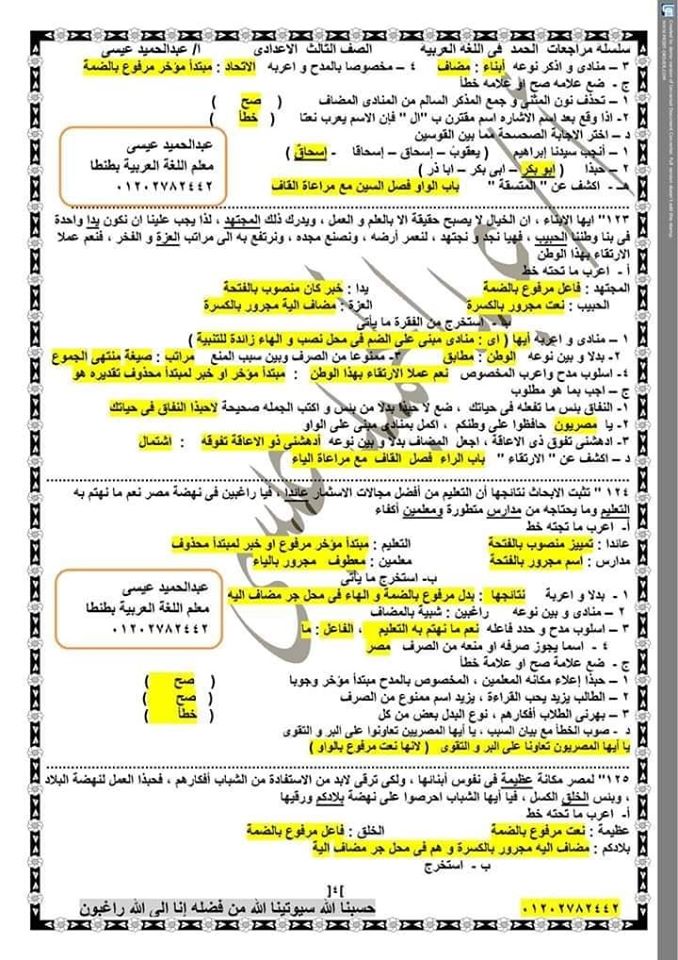 سلسله مراجعات الحمد فى اللغه العربيه الصف الثالث الاعدادى أ/ عبدالحميد عيسى
٣ – منادى و اذكر نوعه أبناء : مضاف ٤ – مخصوصا بالمدح و اعربه الاتحاد : مبتدأ مؤخر مرفوع بالضمة
ج - ضع علامه صح او علامه خطأ
١ – تحذف نون المثنى و جمع المذكر السالم من المنادى المضاف ( صح )
٢- اذا وقع بعد اسم الاشاره اسم مقترن ب "ال " فإن الاسم يعرب نعتا ( خطأ )
د – اختر الإجابة الصحسحة مما بين القوسين
١ – أنجب سيدنا إبراهيم ( يعقوبَ – إسحاق – إسحاقا - إسحاقَ )
٢ – حبذا ( أبو بكر – ابى بكر – ابا ذر )
هـ - اكشف عن " المتسقة " باب الواو فصل السين مع مراعاة القاف
عبدالحميد عيسى
معلم اللغة العربية بطنطا
٠١٢٠٢٧٨٢٤٤٢
١٢٣" ايها الابناء ، ان الخيال لا يصبح حقيقة الا بالعلم و العمل ، ويدرك ذلك المجتهد ، لذا يجب علينا ان نكون يدا واحدة
فى بنا وطننا الحبيب ، فهيا نجد و نجتهد ، لنعمر أرضه ، ونصنع مجده ، ونرتفع به الى مراتب العزة و الفخر ، فنعم عملا
الارتقاء بهذا الوطن
أ - اعرب ما تحته خط
المجتهد : فاعل مرفوع بالضمة يدا : خبر كان منصوب بالفتحة
الحبيب : نعت مجرور بالكسرة العزة : مضاف الية مجرور بالكسرة
ب - استخرج من الفقرة ما يأتى
١ – منادى و اعربه أيها ( اى : منادى مبنى على الضم فى محل نصب و الهاء زائدة للتنبية )
٢- بدلا و بين نوعه الوطن : مطابق ٣- ممنوعا من الصرف وبين سبب المنع مراتب : صيغة منتهى الجموع
٤- اسلوب مدح واعرب المخصوص نعم عملا الارتقاء بهذا الوطن : مبتدأ مؤخر او خبر لمبتدأ محذوف تقديره هو
ج – اجب بما هو مطلوب
١- النفاق بئس ما تفعله فى حياتك ، ضع لا حبذا بدلا من بئس و اكتب الجمله صحيحة لاحبذا النفاق فى حياتك
٢- يا مصريون حافظوا على وطنكم ، اكمل بمنادى مبنى على الواو
٣- ادهشنى تفوق ذى الاعاقة ، اجعل المضاف بدلا و بين نوعه أدهشنى ذو الاعاقة تفوقه : اشتمال
د – اكشف عن " الارتقاء " باب الراء فصل القاف مع مراعاة الياء
١٢٤ " تثبت الابحاث نتائجها أن التعليم من أفضل مجالات الاستثمار عائدا ، فيا راغبين فى نهضة مصر نعم ما نهتم به
التعليم وما يحتاجه من مدارس متطورة ومعلمين أكفاء
أ- اعرب ما تجته خط
عائدا : تمييز منصوب بالفتحة التعليم : مبتدأ مؤخر مرفوع او خبر لمبتدأ محذوف
مدارس : اسم مجرور بالفتحة معلمين : معطوف مجرور بالياء
ب- استخرج ما يأتى
١ - بدلا و اعربة نتائجها : بدل مرفوع بالضمة و الهاء فى محل جر مضاف اليه
٢ – منادى و بين نوعه راغبين : شبية بالمضاف
٣ – اسلوب مدح و حدد فاعله نعم ما نهتم به التعليم ، الفاعل : ما
٤ - اسما يجوز صرفه او منعه من الصرف مصر
ج - ضع علامة صح او علامة خطأ
١ – حبذا إعلاء مكانه المعلمين ، المخصوص بالمدح مبتدأ مؤخر وجوبا ( صح )
٢ – الطالب يزيد يحب القراءة ، يزيد اسم ممنوع من الصرف ( صح )
٣ – بهرنى الطلاب أفكارهم ، نوع البدل بعض من كل ( خطأ )
د - صوب الخطأ مع بيان السبب ، يا أيها المصريين تعاونوا على البر و التقوى
يا أيها المصريون تعاونا على البر و التقوى ( لانها نعت مرفوع بالواو )
عبدالحميد عيسى
معلم اللغة العربية بطنطا
٠١٢٠٢٧٨٢٤٤٢
١٢٥" لمصر مكانة عظيمة فى نفوس أبنائها ، ولكى ترقى لابد من الاستفادة من الشباب أفكارهم ، فحبذا العمل لنهضة البلاد
، وبئس الخلق الكسل ، فيا أيها الشباب احرصوا على نهضة بلادكم ورقيها
أ- اعرب ما تحته خط
عظيمة : نعت مرفوع بالضمة الخلق : فاعل مرفوع بالضمة
بلادكم : مضاف اليه مجرور بالكسرة و هم فى محل جر مضاف الية
ب - استخرج
]٤[
٠١٢٠٢٧٨٢٤٤٢ حسبنا الله سيوتينا الله من فضله إنا الى الله راغبون